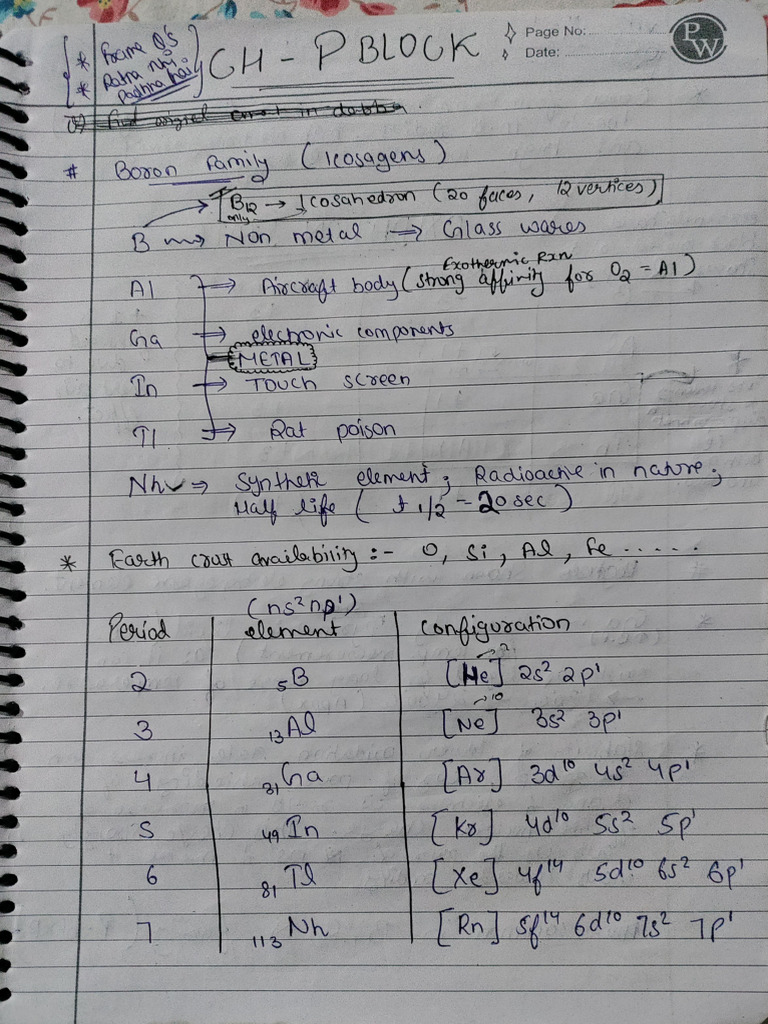 * Frame Q's
* Ratna nhi
Padhna hai
CH - P BLOCK
Page No:
Date:
PW
# Boron Family (Icosagens)
B12 → Icosahedron (20 faces, 12 vertices)
only
B → Non metal → Glass wares
Exothermic Rxn
Al ⇒ Aircraft body (strong affinity for O2 = Al)
Ga ⇒ electronic components
METAL
In → Touch screen
Tl ⇒ Rat poison
Nh ⇒ Synthetic element; Radioactive in nature;
Half life (t 1/2 = 20 sec)
* Earth crust availability :- O, Si, Al, Fe .....
(ns² np¹)
Period element configuration
2 5B [He] 2s² 2p¹
2
3 13Al [Ne] 3s² 3p¹
10
4 31Ga [Ar] 3d¹⁰ 4s² 4p¹
5 49In [Kr] 4d¹⁰ 5s² 5p¹
6 81Tl [Xe] 4f¹⁴ 5d¹⁰ 6s² 6p¹
7 113Nh [Rn] 5f¹⁴ 6d¹⁰ 7s² 7p¹